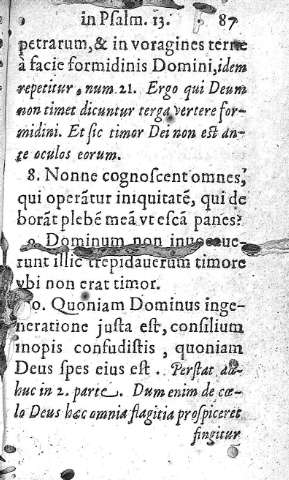 in Psalm. 13. 87
petrarum, & in voragines terræ
à facie formidinis Domini, idem
repetitur, num 21. Ergo qui Deum
non timet dicuntur terga vertere for-
midini. Et sic timor Dei non est an-
te oculos eorum.
8. Nonne cognoscent omnes,
qui operãtur iniquitatẽ, qui de
borãt plebẽ meã vt escã panes?
9. Dominum non inuocaue-
runt illic trepidauerunt timore
vbi non erat timor.
0. Quoniam Dominus in ge-
neratione justa est, consilium
inopis confudistis, quoniam
Deus spes eius est. Perstat ad-
huc in 2. parte. Dum enim de cœ-
lo Deus hæc omnia flagitia prospiceret
fingitur